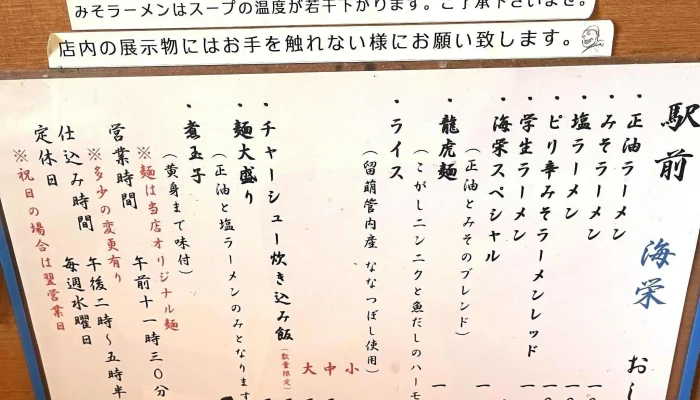 みそラーメンはスープの温度が若干下がります。ご了承下さいませ。
店内の展示物にはお手を触れない様にお願い致します。
駅前 海栄 おし
・正油ラーメン
・みそラーメン
・塩ラーメン
・ピリ辛みそラーメンレッド
・学生ラーメン
・海栄スペシャル
(正油とみそのブレンド)
・龍虎麺
(こがしニンニクと魚だしのハーモ
・ライス
(留萌管内産 ななつぼし使用)
小
中
大
・チャーシュー炊き込み飯
(数量限定)
・麺大盛り
(正油と塩ラーメンのみとなります
・煮玉子
(黄身まで味付)
※麺は当店オリジナル麺
営業時間 午前十一時三〇分
※多少の変更有り
仕込み時間 午後二時〜五時半
定休日 毎週水曜日
※祝日の場合は翌営業日